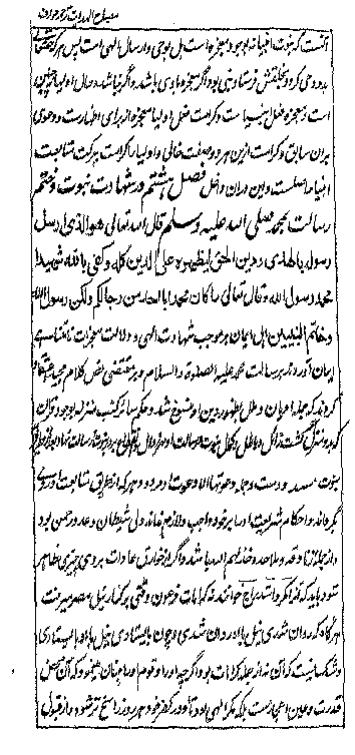 مصباح الهدایت ترجمه عوارف
آنست که نبوت انبیا نه بوجود معجزه است بل بوحی و ارسال الهی است پس هر که حق تعالی
بدو وحی کرد و بخلقش فرستاد نبی بود اگر معجزه با وی باشد و اگر نباشد و حال اولیا همچنین
است و معجزه فعل انبیاست و کرامت فعل اولیا معجزه از برای اظهارست و دعوی
بران سابق و کرامت ازین هر دو صفت خالی و اولیا را کرامت ببرکت متابعت
انبیا حاصلست و این دران داخل فصل هشتم در شهادت نبوت و ختم
رسالت محمد صلی الله علیه وسلم قال الله تعالی هو الذی ارسل
رسوله بالهدی و دین الحق لیظهره علی الدین کله و کفی بالله شهیدا
محمد رسول الله و قال تعالی ما کان محمد ابا احد من رجالکم ولکن رسول الله
و خاتم النبیین اهل ایمان بر موجب شهادت الهی و دلالت معجزات نامتناهی
ایمان آوردند برسالت محمد علیه الصلوة والسلام و بر مقتضی نص کلام مجید اعتقاد
کردند که جمله ادیان و ملل بظهور دین او منسوخ شد و حکم سائر کتب منزله بوجود قرآن
نبوت مسدود است و جمله دعوتها الا دعوت او مردود و هر که از طریق متابعت او روی
بگرداند و احکام شریعت او را بر خود واجب و لازم نداند ولی شیطان و عدو رحمن بود
و از جمله زنادقه و ملاحده خذلهم الله باشد و اگر از خوارق عادات بر وی چیزی ظاهر
شود باید که آنرا مکر و استدراج خوانند نه کرامات فرعون وقتی بر کنار نیل مصر میرفت
هر گاه که روان شدی نیل با او روان شدی و چون بایستادی نیل با او بایستادی
و شک نیست که آن نه از جمله کرامات بود اگر چه او را و قوم او را چنان می نمود که آن محض
قدرت و عین اعجازست بلکه مکر الهی بود تا در کفر خود هر روز راسخ تر شود و از قبول